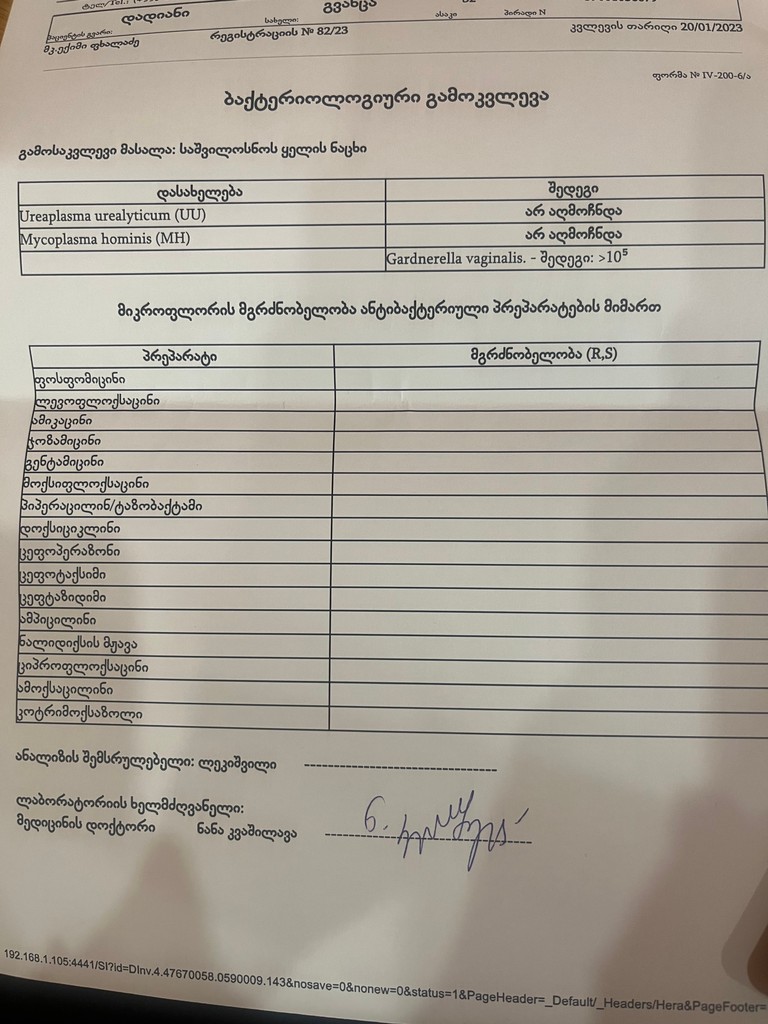 დადიანი გვანცა
პაციენტის გვარი: სახელი: ასაკი პირადი N
მკ.ექიმი ფხალაძე რეგისტრაციის № 82/23 კვლევის თარიღი 20/01/2023
ფორმა № IV-200-6/ა
ბაქტერიოლოგიური გამოკვლევა
გამოსაკვლევი მასალა: საშვილოსნოს ყელის ნაცხი
დასახელება შედეგი
Ureaplasma urealyticum (UU) არ აღმოჩნდა
Mycoplasma hominis (MH) არ აღმოჩნდა
Gardnerella vaginalis. - შედეგი: >10⁵
მიკროფლორის მგრძნობელობა ანტიბაქტერიული პრეპარატების მიმართ
პრეპარატი მგრძნობელობა (R,S)
ფოსფომიცინი
ლევოფლოქსაცინი
ამიკაცინი
ჯოზამიცინი
გენტამიცინი
მოქსიფლოქსაცინი
პიპერაცილინ/ტაზობაქტამი
დოქსიციკლინი
ცეფოპერაზონი
ცეფოტაქსიმი
ცეფტაზიდიმი
ამპიცილინი
ნალიდიქსის მჟავა
ციპროფლოქსაცინი
ამოქსაცილინი
კოტრიმოქსაზოლი
ანალიზის შემსრულებელი: ლეკიშვილი
ლაბორატორიის ხელმძღვანელი:
მედიცინის დოქტორი ნანა კვაშილავა
192.168.1.105:4441/SI?id=DInv.4.47670058.0590009.143&nosave=0&nonew=0&status=1&PageHeader=_Default/_Headers/Hera&PageFooter=